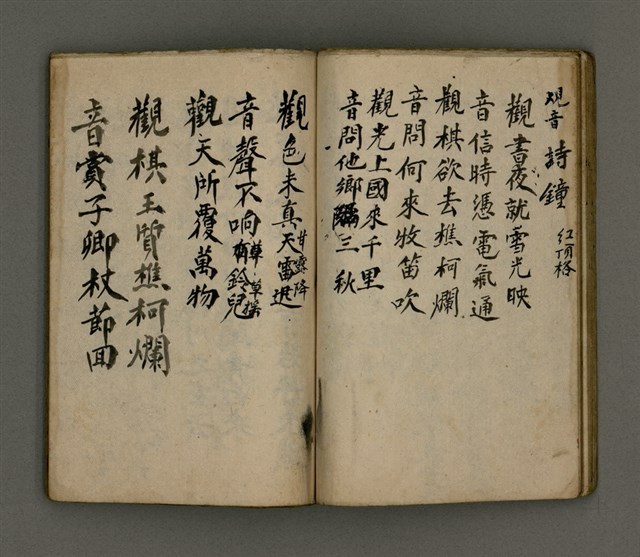 观音 詩鐘 紅頂格
觀書夜就雪光映
音信時憑電氣通
觀棋欲去樵柯爛
音問何來牧笛吹
觀光上國來千里
音問他鄉隔三秋
觀色未真天雷迅
甘露降
音聲不响有鈴兒
草草
觀天所覆萬物
觀棋王質樵柯爛
音賞子卿杖節回